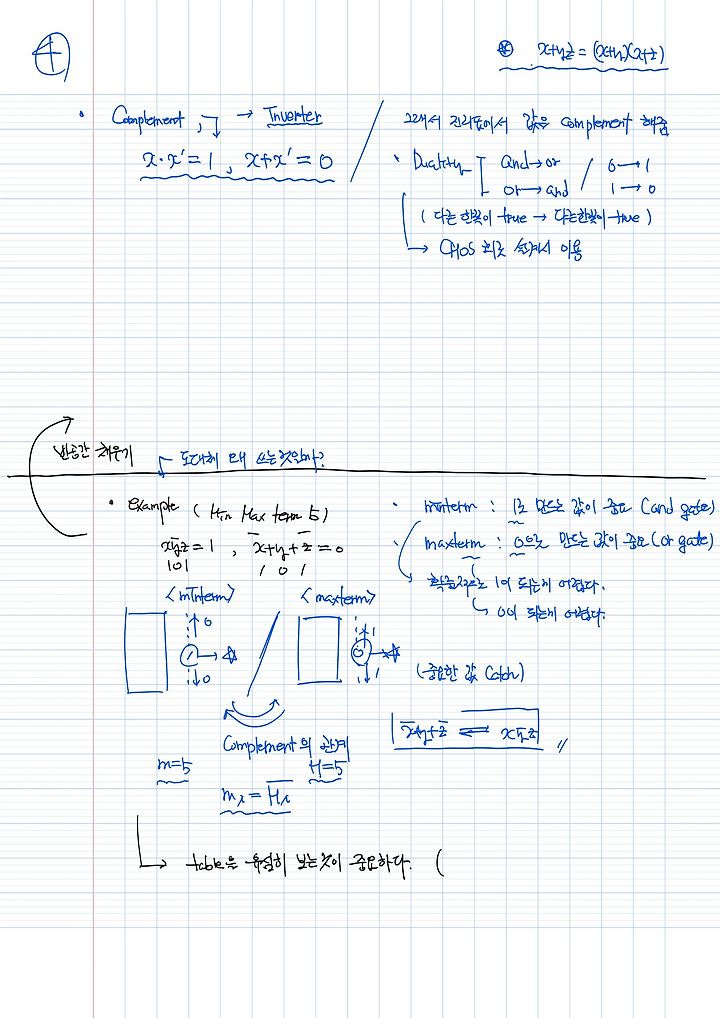 4
※ x+yz = (x+y)(x+z)
• Complement, → Inverter
x·x' = 1, x+x' = 0
그래서 진리표에서 값을 complement 해줌
• Duality and → or / 0 → 1
or → and / 1 → 0
( 다른 한쪽이 true → 다른한쪽이 true )
→ CMOS 회로 설계시 이용
빈공간 채우기
도대체 왜 쓰는것일까?
• example ( Min Max term 5)
xy̅z = 1, x̅+y+z̅ = 0
101
1 0 1
<minterm> / <maxterm>
0
1
0
1
0
1
Complement의 관계
m=5
M=5
mᵢ = M̅ᵢ
• minterm : 1로 만드는 값이 중요 (and gate)
• maxterm : 0으로 만드는 값이 중요 (or gate)
확률적으로 1이 되는게 어렵다.
0이 되는게 어렵다.
(중요한 값 Catch)
x̅+y+z̅ ⇌ xy̅z //
→ table을 확실히 보는것이 중요하다. (